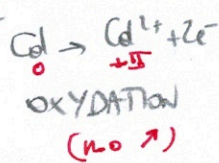 Cd → Cd²⁺ + 2e⁻
0 +II
OXYDATION
(n.o ↗)